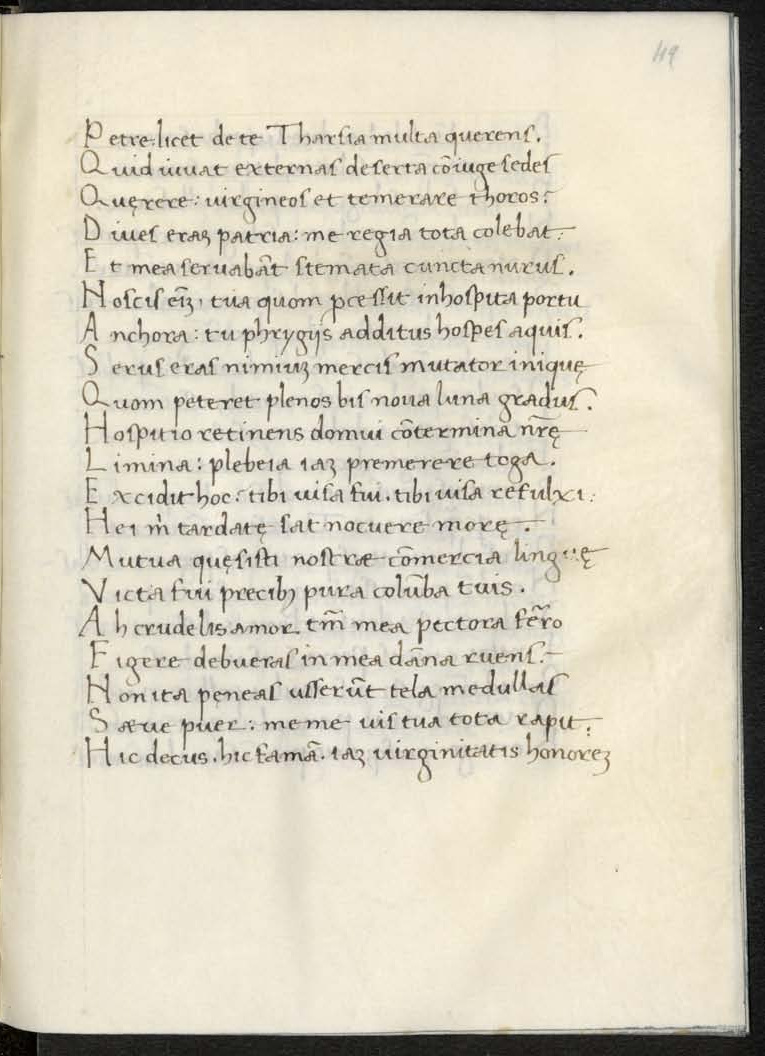 49
Petre: licet de te Tharsia multa querens.
Quid iuuat externas deserta cōiuge sedes
Quęrere: uirgineos et temerare thoros:
Diues eraꝫ patria: me regia tota colebat:
Et mea seruabāt stemata cuncta nurus.
Noscis eīꝫ, tua quom p̄cessit inhospita portu
Anchora: tu phrygijs additus hospes aquis.
Serus eras nimiuꝫ mercis mutator iniquę
Quom peteret plenos bis noua luna gradus.
Hospitio retinens domui cōtermina nr̄ę
Limina: plebeia iaꝫ premerere toga.
Excidit hoc: tibi uisa fui. tibi uisa refulxi:
Hei m̍ tardatę sat nocuere morę.
Mutua quęsisti nostræ cōmercia linguę
Victa fui precibꝫ pura colūba tuis.
Ah crudelis amor. tm̄ mea pectora fer̄o
Figere debueras in mea dāna ruens:
Non ita peneas usserūt tela medullas
Sæue puer: me me uis tua tota rapit:
Hic decus. hic famā. iaꝫ uirginitatis honoreꝫ